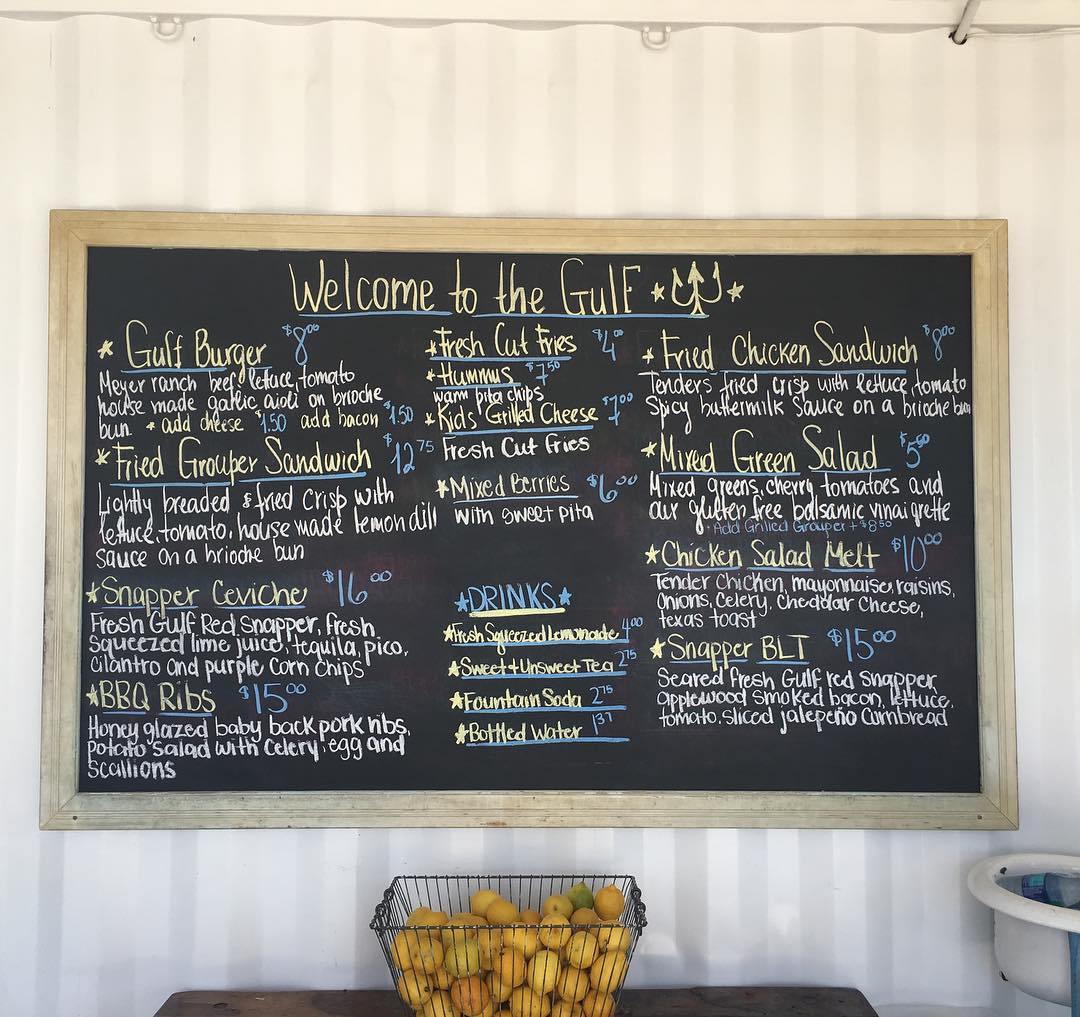 Welcome to the Gulf
* Gulf Burger $8.00
Meyer ranch beef, lettuce, tomato
house made garlic aioli on brioche
bun * add cheese $1.50 add bacon $1.50
* Fried Grouper Sandwich $12.75
Lightly breaded & fried crisp with
lettuce, tomato, house made lemon dill
sauce on a brioche bun
* Snapper Ceviche $16.00
Fresh Gulf Red Snapper, fresh
squeezed lime juice, tequila, pico,
cilantro and purple corn chips
* BBQ Ribs $15.00
Honey glazed baby back pork ribs,
potato salad with celery, egg and
scallions
* Fresh Cut Fries $4.00
* Hummus $7.50
warm pita chips
* Kids' Grilled Cheese $7.00
Fresh Cut Fries
* Mixed Berries $6.00
with sweet pita
* DRINKS *
* Fresh Squeezed Lemonade 4.00
* Sweet + Unsweet Tea 2.75
* Fountain Soda 2.75
* Bottled Water 1.37
* Fried Chicken Sandwich $8.00
Tenders fried crisp with lettuce, tomato
Spicy buttermilk sauce on a brioche bun
* Mixed Green Salad $5.50
Mixed greens, cherry tomatoes and
our gluten free balsamic vinaigrette
• Add Grilled Grouper + $8.50
* Chicken Salad Melt $10.00
Tender chicken, mayonnaise, raisins,
onions, celery, cheddar cheese,
texas toast
* Snapper BLT $15.00
Seared fresh Gulf red snapper,
applewood smoked bacon, lettuce,
tomato, sliced jalepeño cornbread